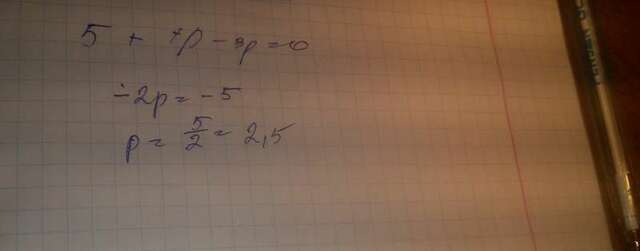 5 + 7p - 9p = 0
-2p = -5
p = 5/2 = 2,5